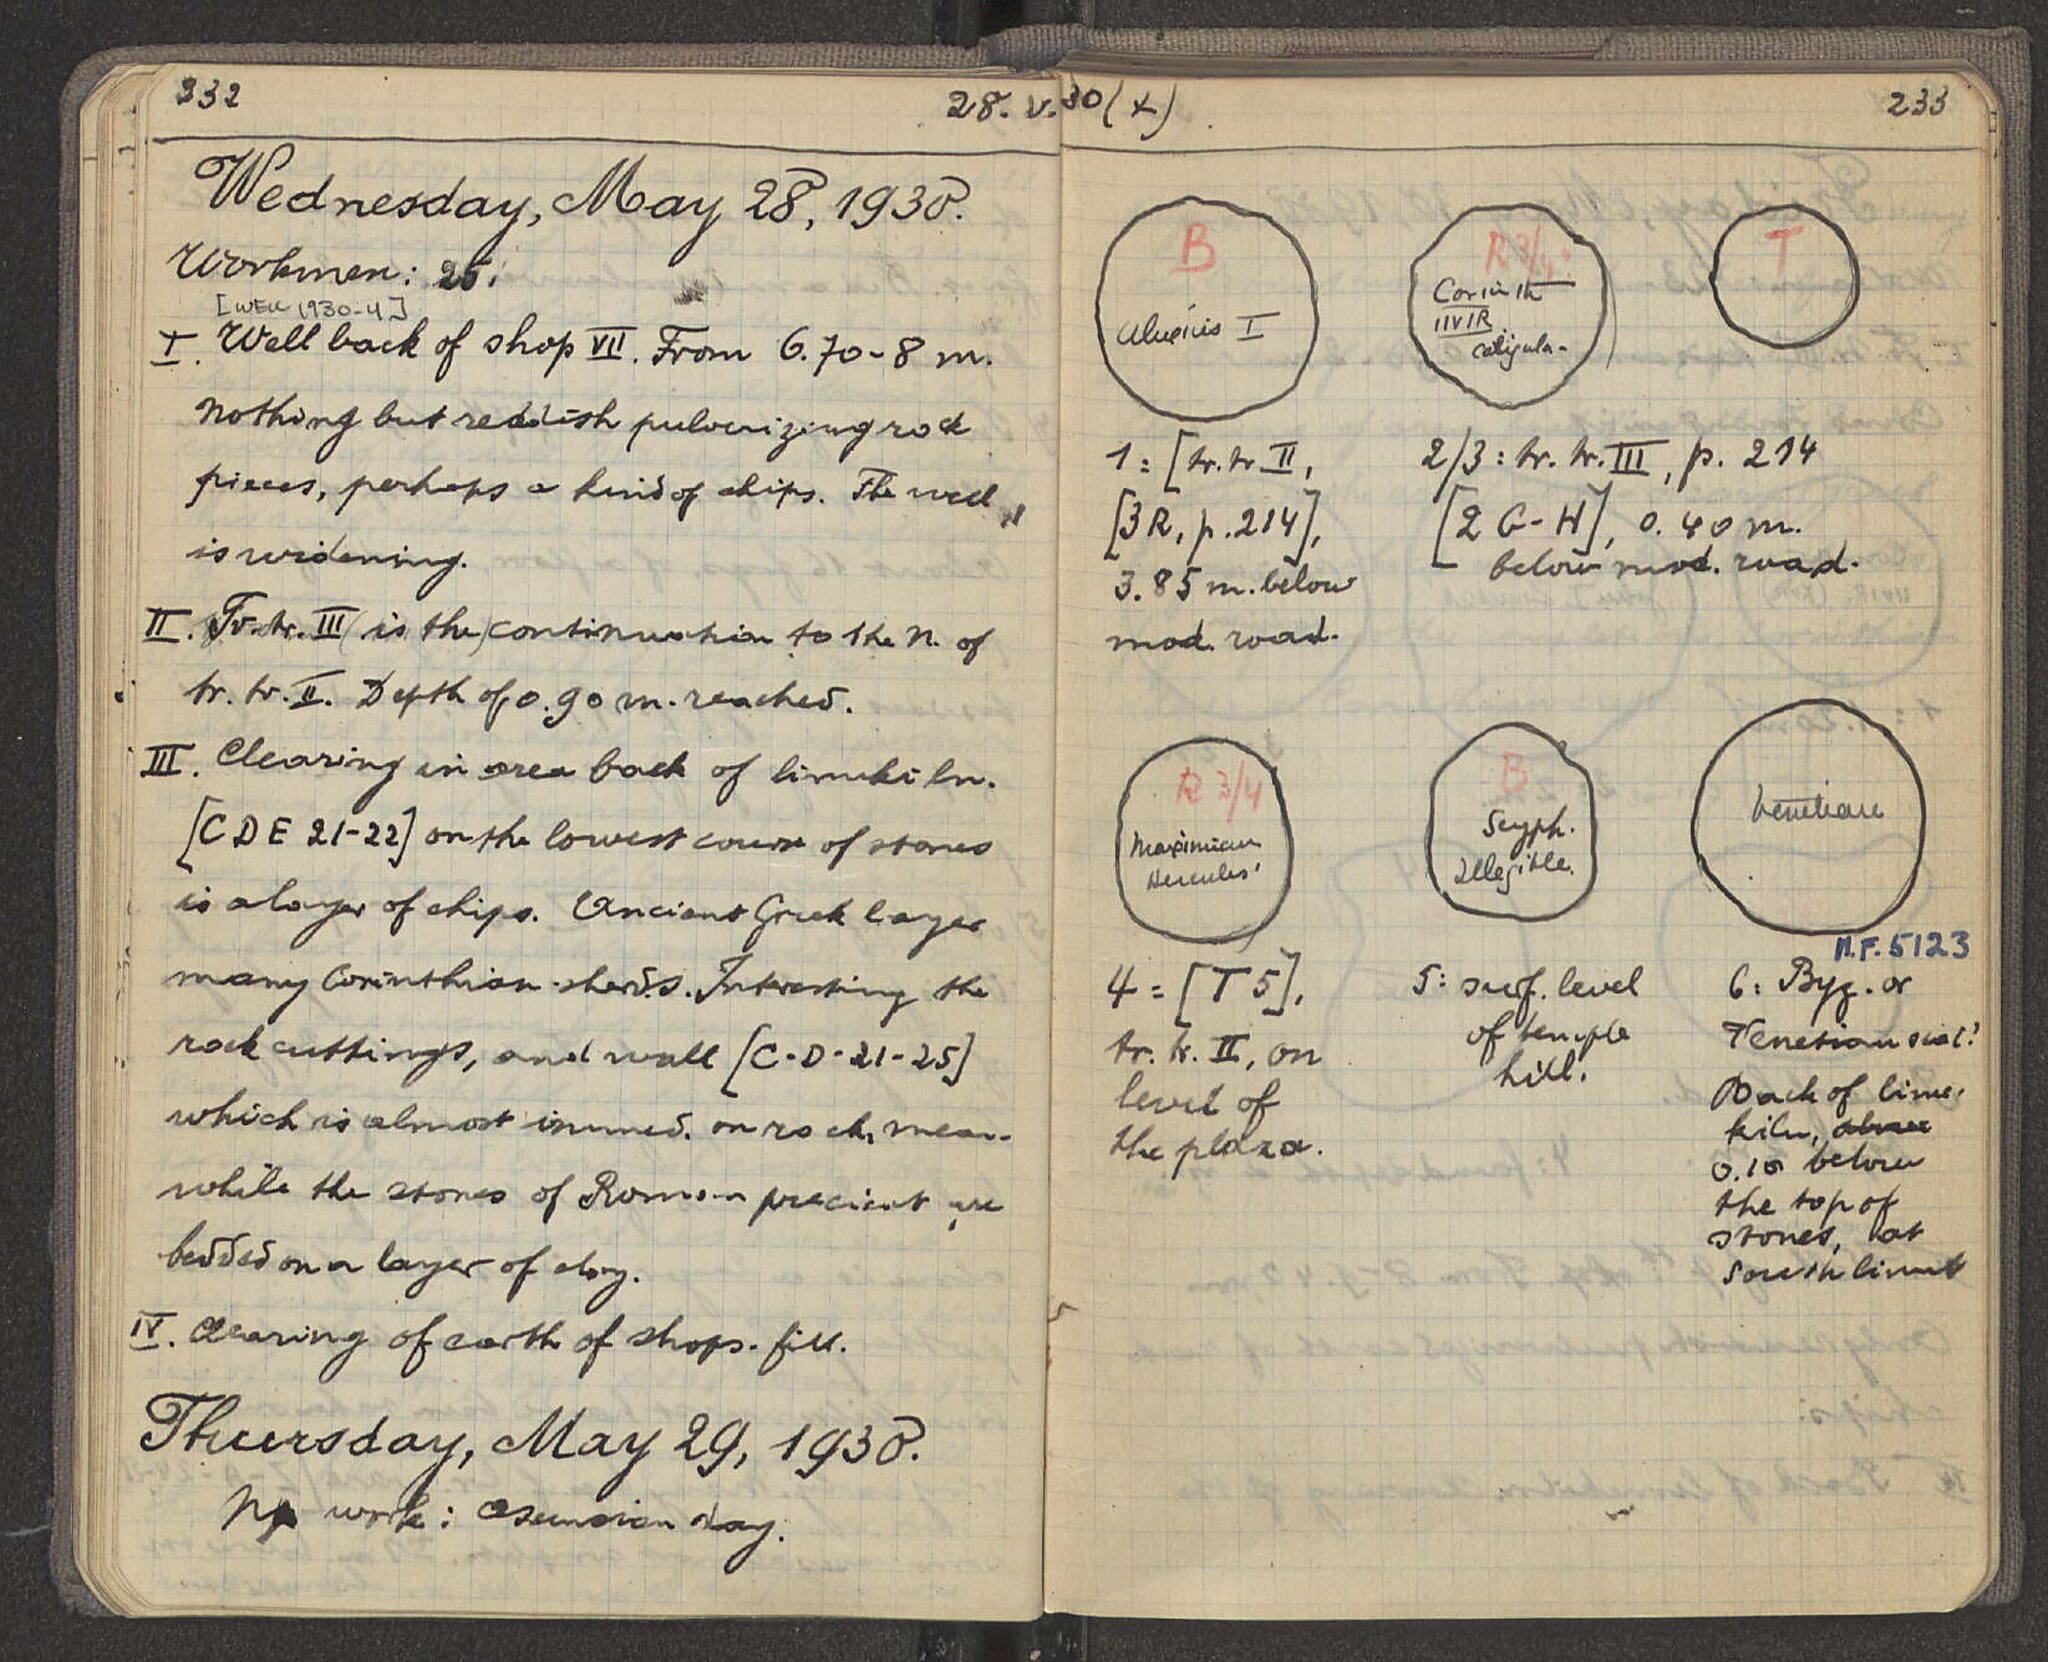 232
28. V. 30 (x)
233
Wednesday, May 28, 1930.
Workmen: 25.
[WELL 1930-4]
I. Well back of shop VII. From 6.70-8 m.
nothing but reddish pulverizing rock
pieces, perhaps a kind of chips. The well
is widening.
II. Tr. tr. III (is the) continuation to the N. of
tr. tr. II. Depth of 0.90 m. reached.
III. Clearing in area back of limekiln.
[C D E 21-22] on the lowest course of stones
is a layer of chips. Ancient Greek layer
many Corinthian sherds. Interesting the
rock cuttings, and wall [C-D-21-25]
which is almost immed. on rock, mean-
while the stones of Roman precinct are
bedded on a layer of clay.
IV. Clearing of earth of shops. fill.
Thuersday, May 29, 1930.
No work: Asension day.
B
Alexius I
R 3/4
Corinth
IIVIR
Caligula
T
1: [tr. tr. II,
[3R, p. 214],
3.85 m. below
mod. road.
2/3: tr. tr. III, p. 214
[2 G-H], 0.40 m.
below mod. road.
R 3/4
Maximian
Hercules
B
Scyph.
Illegible.
Venetian
N.F. 5123
4 = [T 5],
tr. tr. II, on
level of
the plaza.
5: surf. level
of temple
hill.
6: Byz. or
Venetian
Back of lime-
kiln, above
0.10 below
the top of
stones, at
south limit